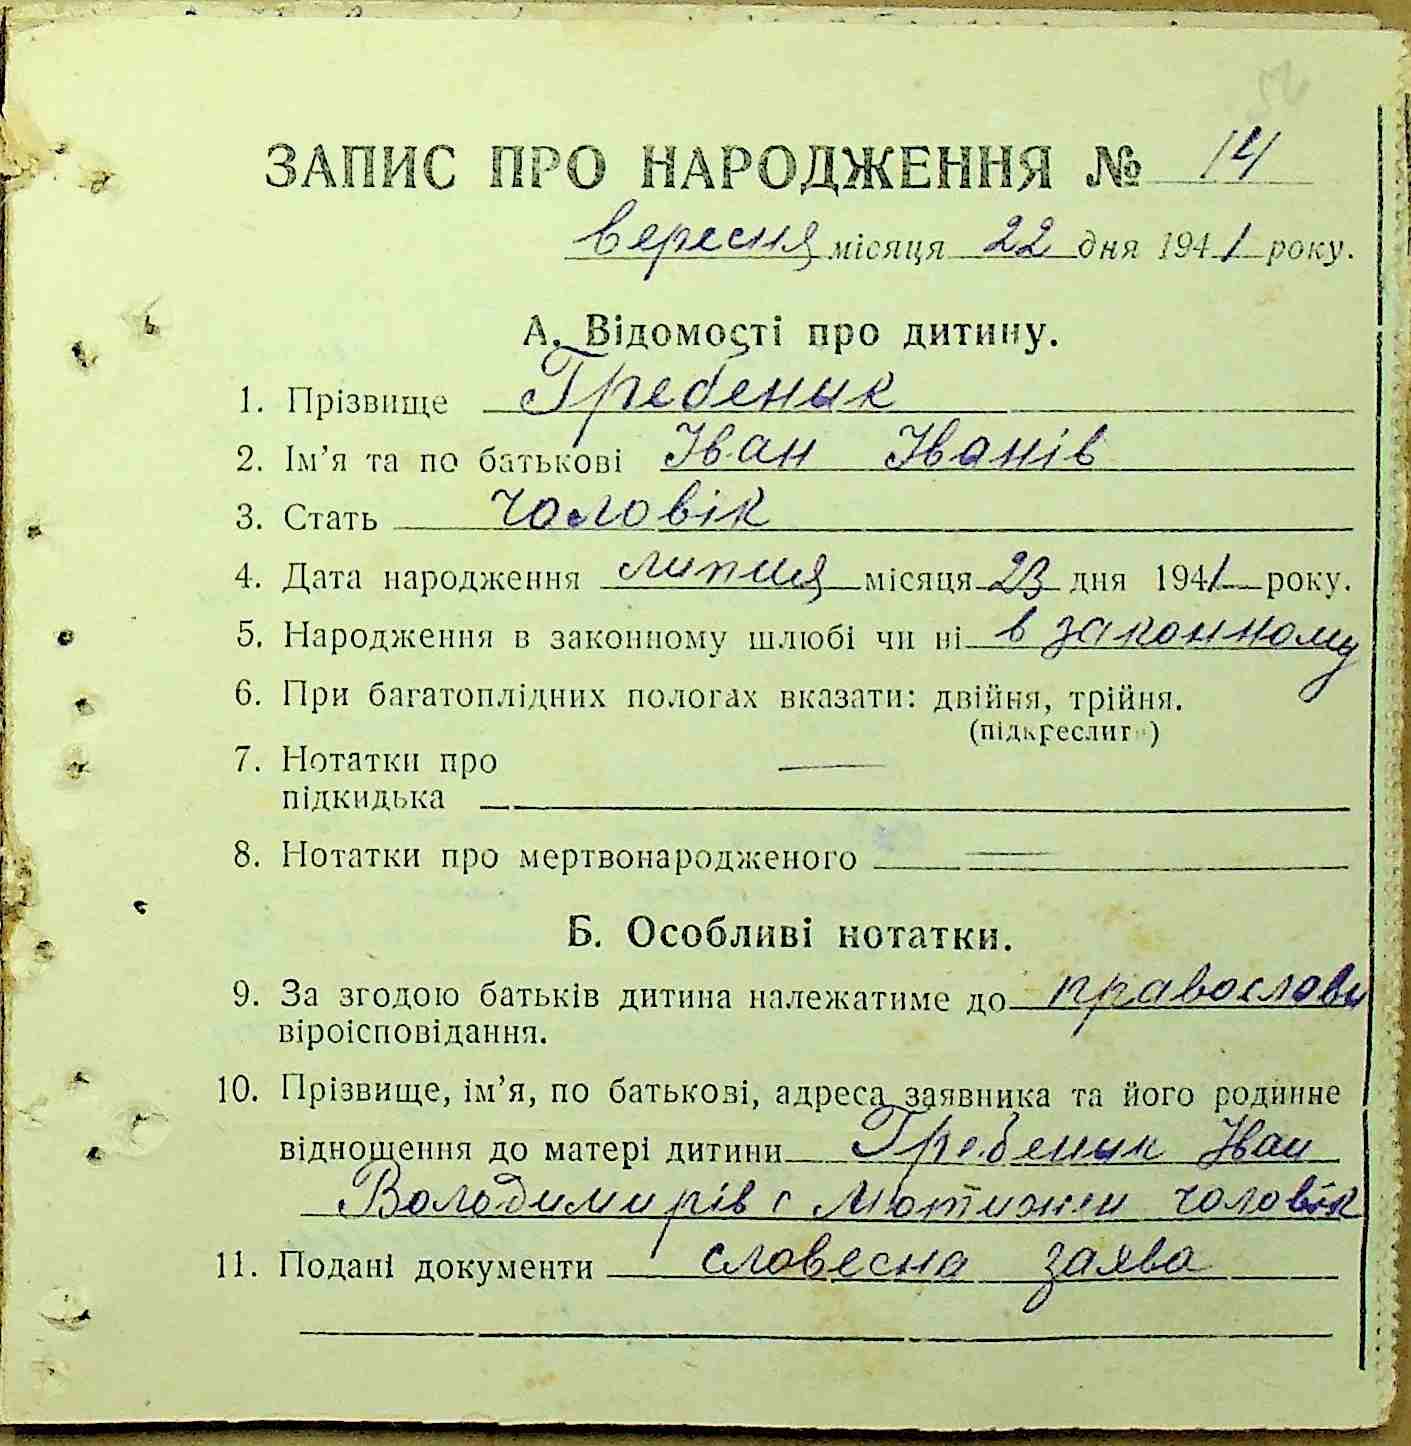 52
ЗАПИС ПРО НАРОДЖЕННЯ № 14
вересня місяця 22 дня 1941 року.
А. Відомості про дитину.
1. Прізвище Гребеник
2. Ім'я та по батькові Іван Іванів
3. Стать чоловік
4. Дата народження липня місяця 23 дня 1941 року.
5. Народження в законному шлюбі чи ні в законному
6. При багатоплідних пологах вказати: двійня, трійня.
(підкреслити)
7. Нотатки про
підкидька —
8. Нотатки про мертвонародженого —
Б. Особливі нотатки.
9. За згодою батьків дитина належатиме до православн
віроісповідання.
10. Прізвище, ім'я, по батькові, адреса заявника та його родинне
відношення до матері дитини Гребеник Іван
Володимирів с Мотижин чоловік
11. Подані документи словесна заява